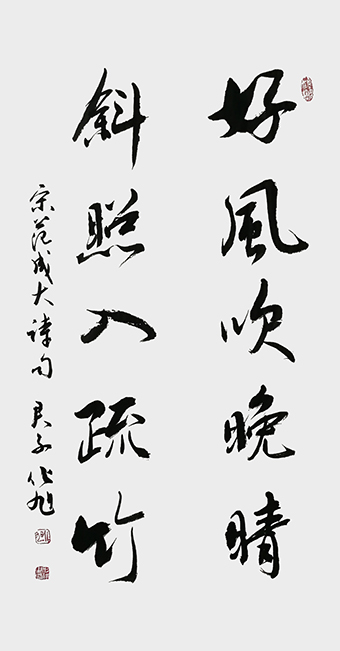 好風吹晚晴
斜照入疏竹
宋范成大詩句 君子